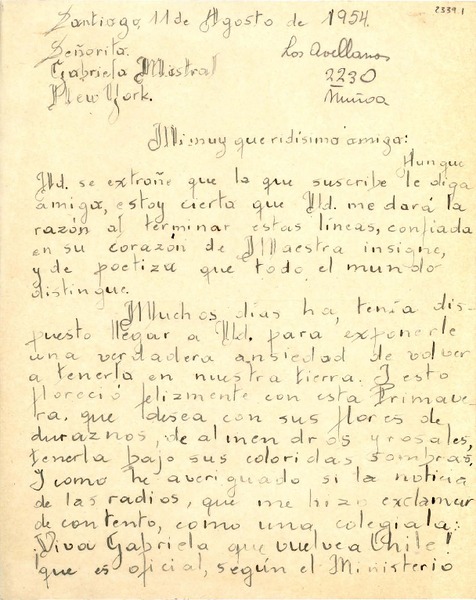 2339.1
Santiago, 11 de Agosto de 1954.
Señorita.
Gabriela Mistral
New York.
Los Avellanos
2230
Ñuñoa
Mi muy queridísima amiga:
Aunque
Ud. se extrañe que la que suscribe le diga
amiga, estoy cierta que Ud. me dará la
razón al terminar estas líneas, confiada
en su corazón de Maestra insigne,
y de poetiza que todo el mundo
distingue.
Muchos días ha, tenía dis-
puesto llegar a Ud. para exponerle
una verdadera ansiedad de volver
a tenerla en nuestra tierra. I esto
floreció felizmente con esta Primave-
ra, que desea con sus flores de
duraznos, de almendros y rosales,
tenerla bajo sus coloridas sombras,
I como he averiguado si la noticia
de las radios, que me hizo exclamar
de contento, como una colegiala:
¡Viva Gabriela que vuelve a Chile!
que es oficial, según el Ministerio